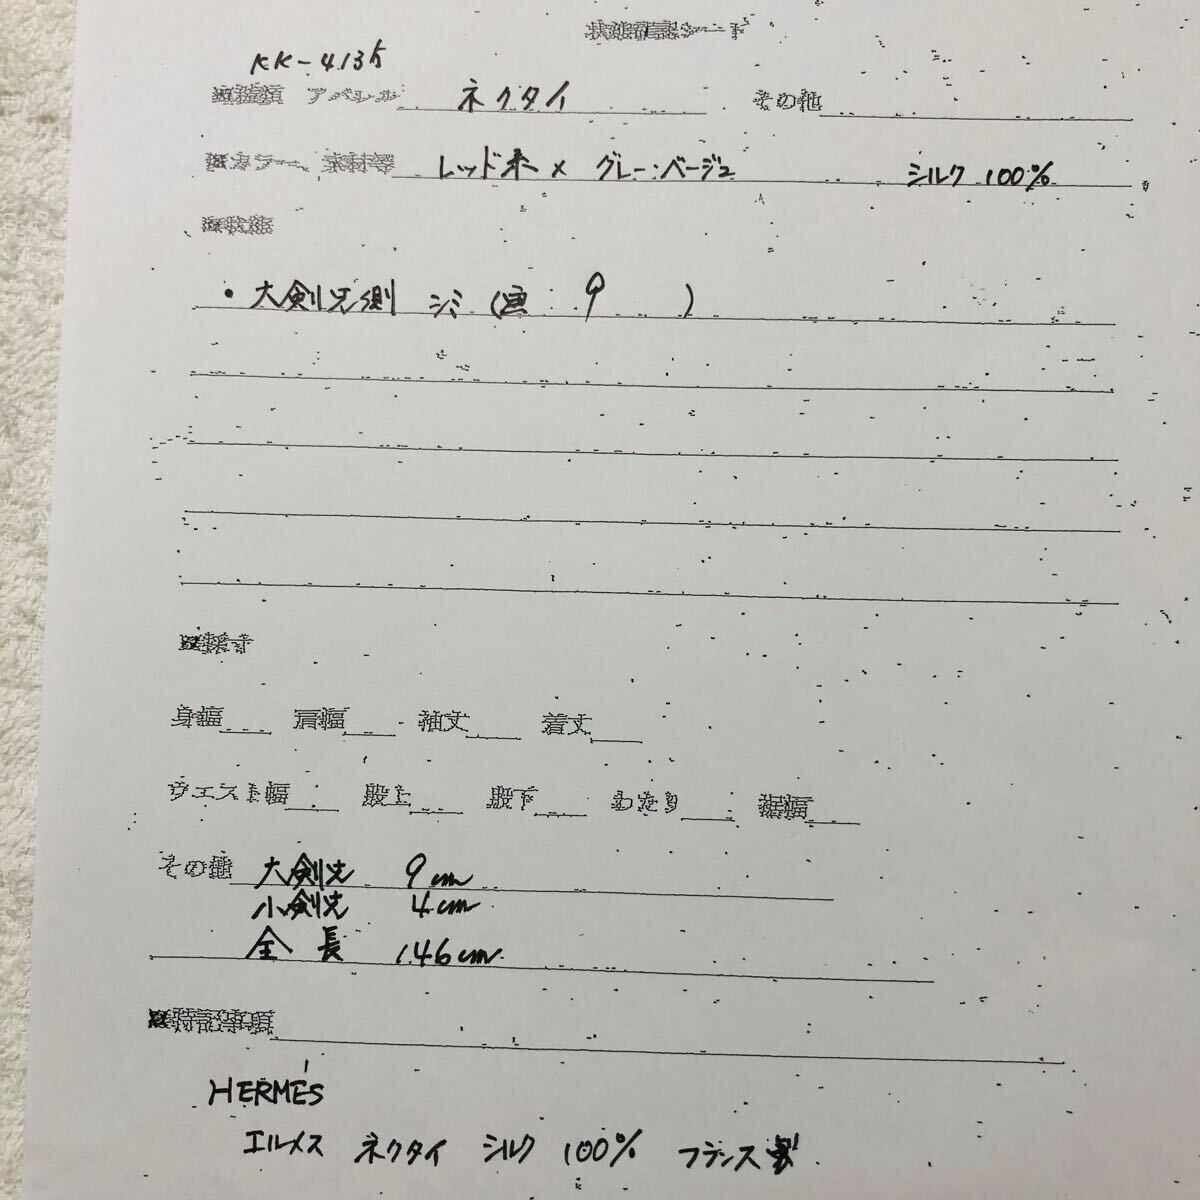 状態確認シート
KK-4135
■種類 アパレル ネクタイ その他
■カラー、素材等 レッド系 × グレー:ベージュ シルク 100%
■状態
・大剣先側 シミ (画: 9 )
■採寸
身幅 肩幅 袖丈 着丈
ウエスト幅 股上 股下 わたり 裾幅
その他 大剣先 9cm
小剣先 4cm
全長 146cm
■特記事項
HERMÉS
エルメス ネクタイ シルク 100% フランス製